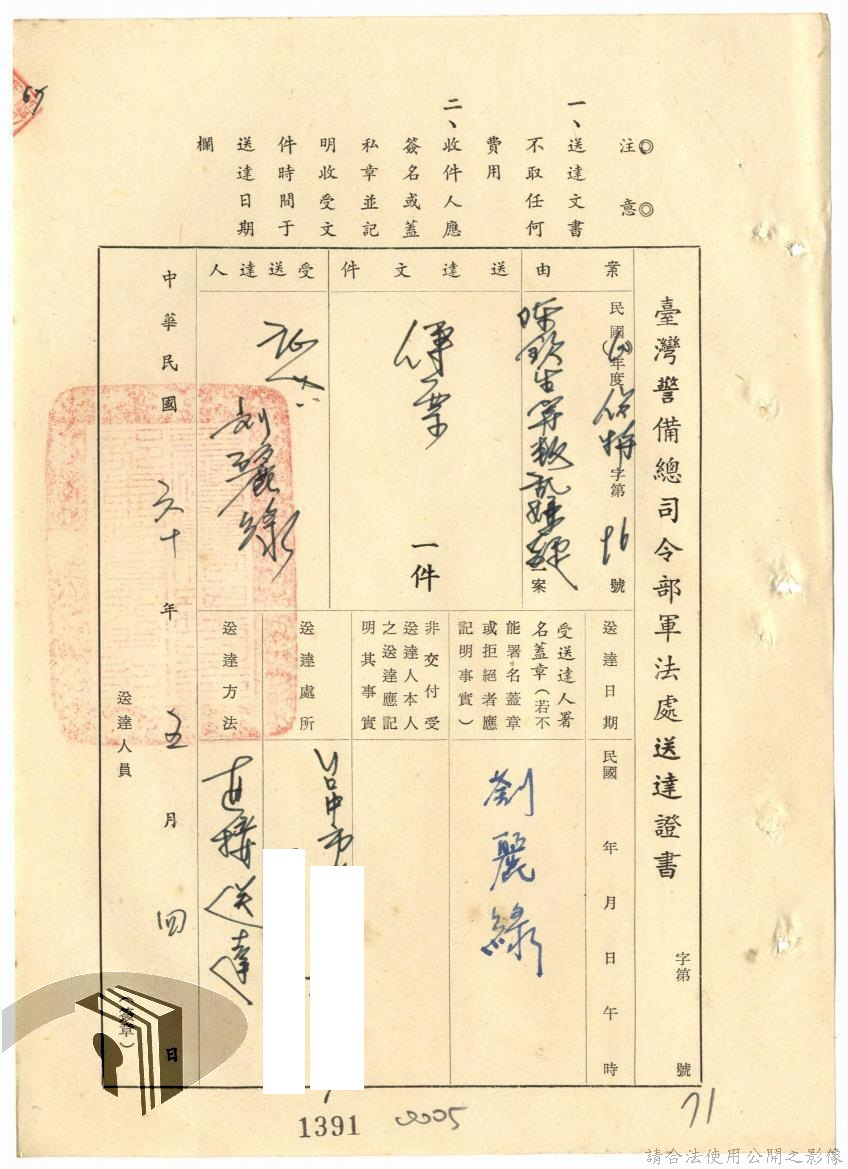 臺灣警備總司令部軍法處送達證書
字第 號
◎注意◎
一、送達文書
不取任何
費用
二、收件人應
簽名或蓋
私章並記
明收受文
件時間于
送達日期
欄
案由
民國(60)年度 字第 號
等叛乱嫌疑一案
送達文件
傳票
一件
受送達人
証人
刘麗綠
送達日期
民國 年 月 日 午 時
受送達人署
名蓋章(若不
能署名蓋章
或拒絕者應
記明事實)
劉麗綠
非交付受
送達人本人
之送達應記
明其事實
送達處所
台中市
送達方法
直接送達
中華民國 六十 年 五 月 四 日
送達人員
(簽章)
67
1391
0005
71
請合法使用公開之影像